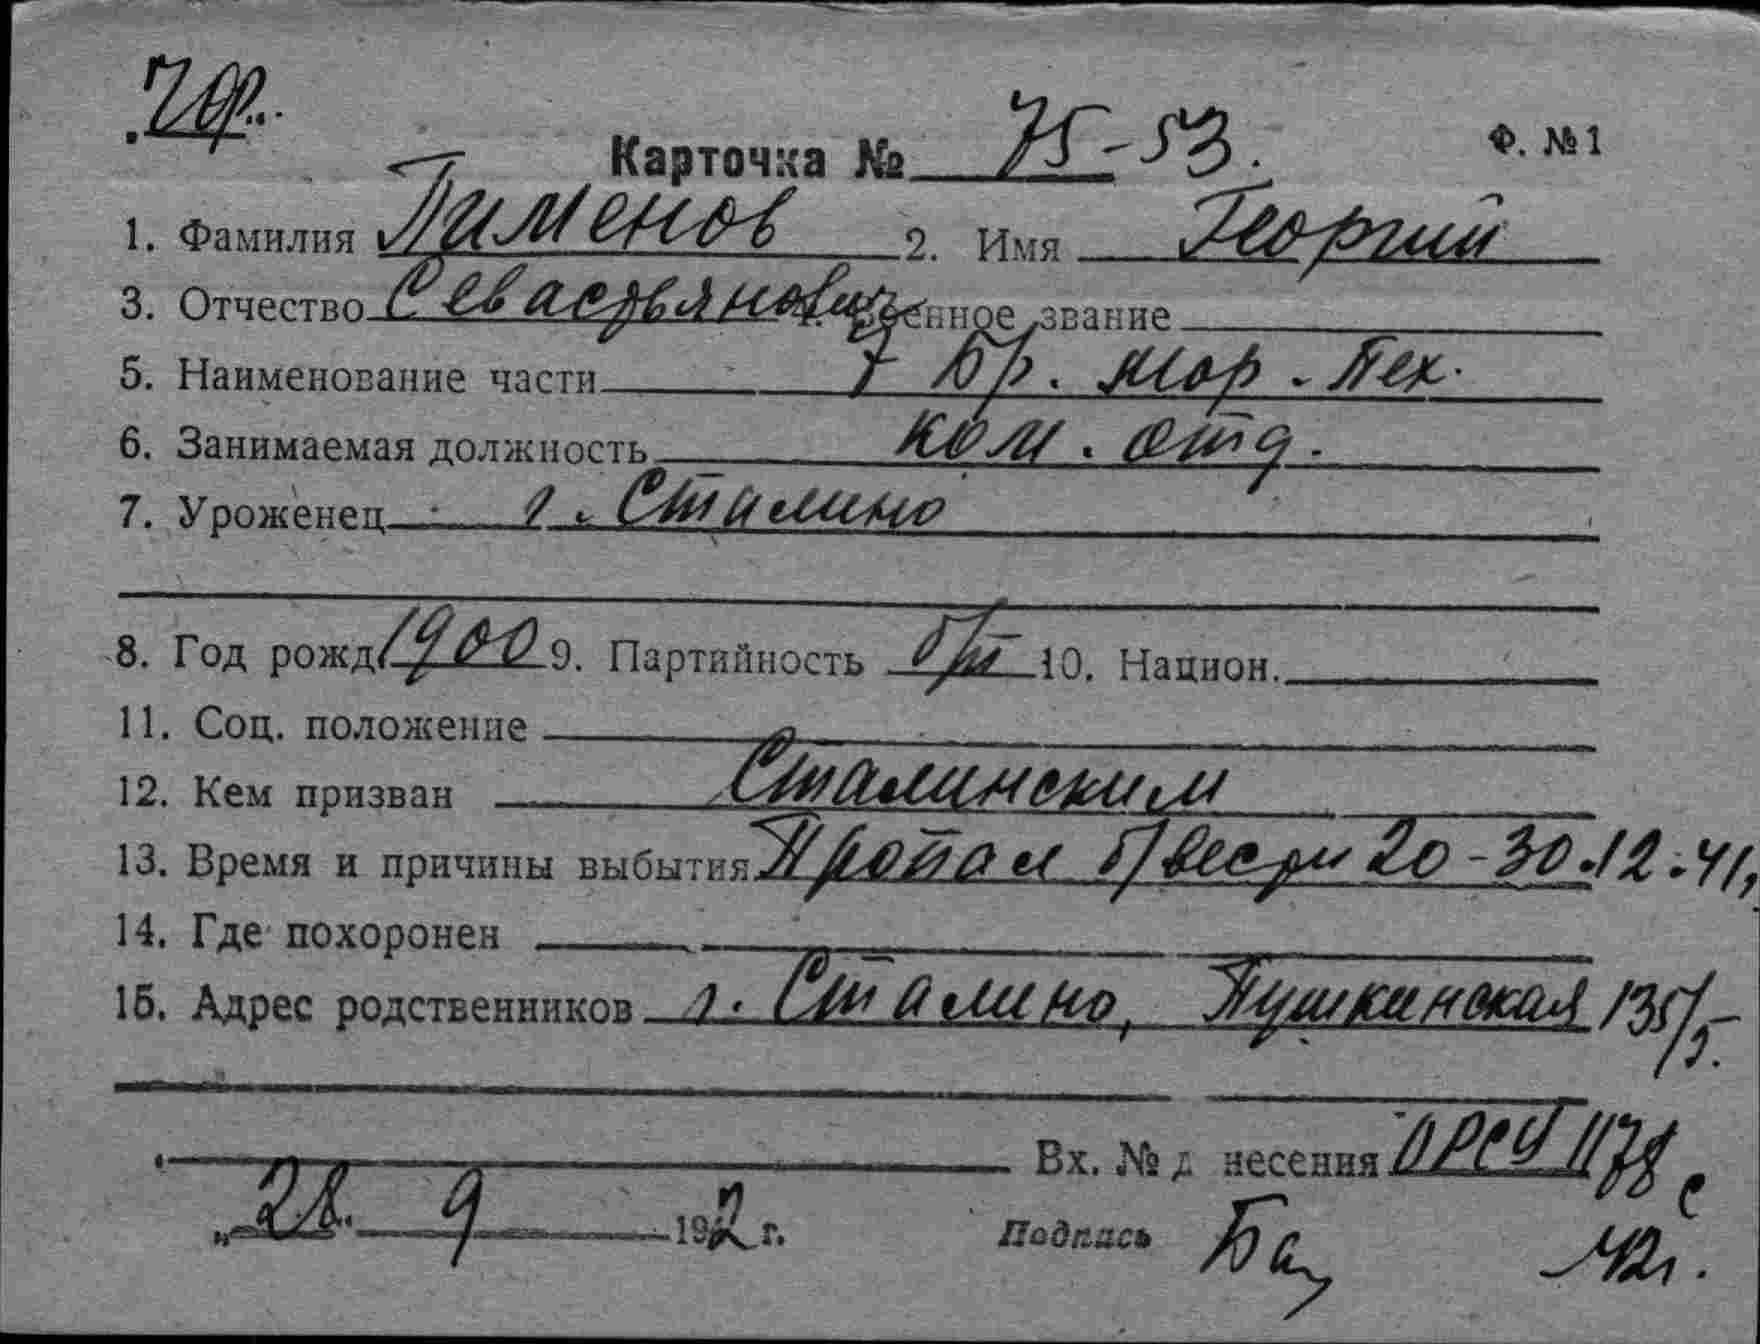 Карточка № 75-53. Ф. № 1
1. Фамилия Пименов 2. Имя Георгий
3. Отчество Севастьянович военное звание
5. Наименование части 7 бр. мор. пех.
6. Занимаемая должность ком. отд.
7. Уроженец г. Сталино
8. Год рожд. 1900 9. Партийность б/п 10. Национ.
11. Соц. положение
12. Кем призван Сталинским
13. Время и причины выбытия Пропал б/вести 20-30.12.41,
14. Где похоронен
15. Адрес родственников г. Сталино, Пушкинская 135/5.
Вх. № д несения ОРСУ 1178 с
„28“ 9 1942 г. Подпись 42 г.